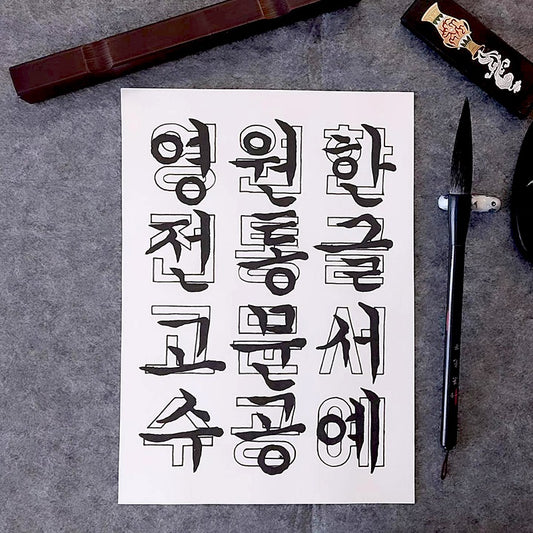 한글서예
원통문공
영전고수